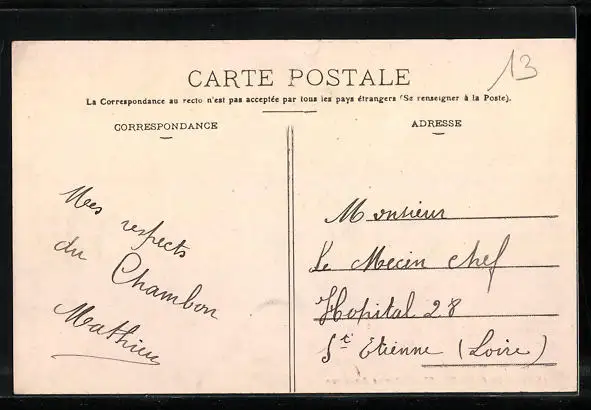 13
CARTE POSTALE
La Correspondance au recto n'est pas acceptée par tous les pays étrangers (Se renseigner à la Poste).
CORRESPONDANCE
Mes respects
du Chambon
Mathieu
ADRESSE
Monsieur
Le Mecin chef
Hopital 28
St Etienne (Loire)